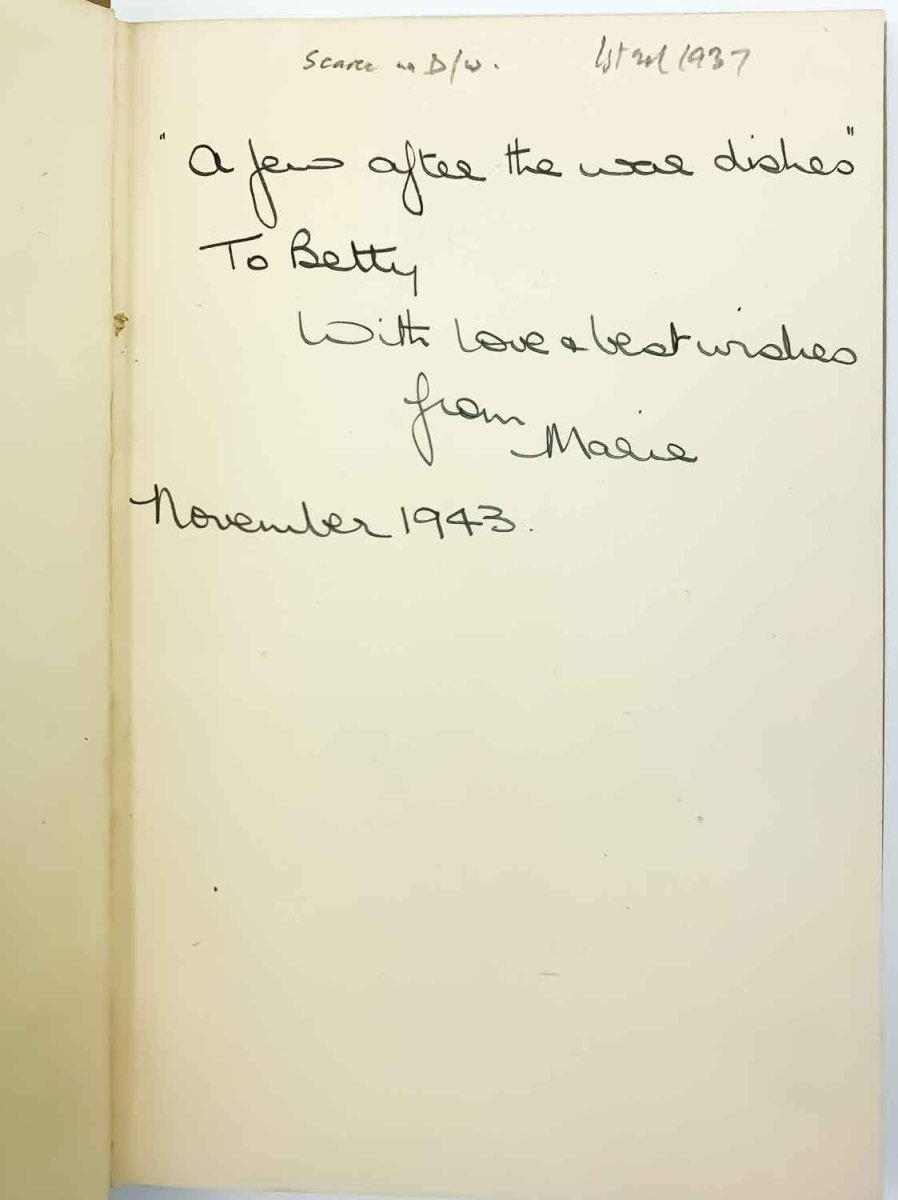 Scarce in D/W. 1st ed 1937
"A few after the war dishes"
To Betty
With love & best wishes
from
Marie
November 1943.